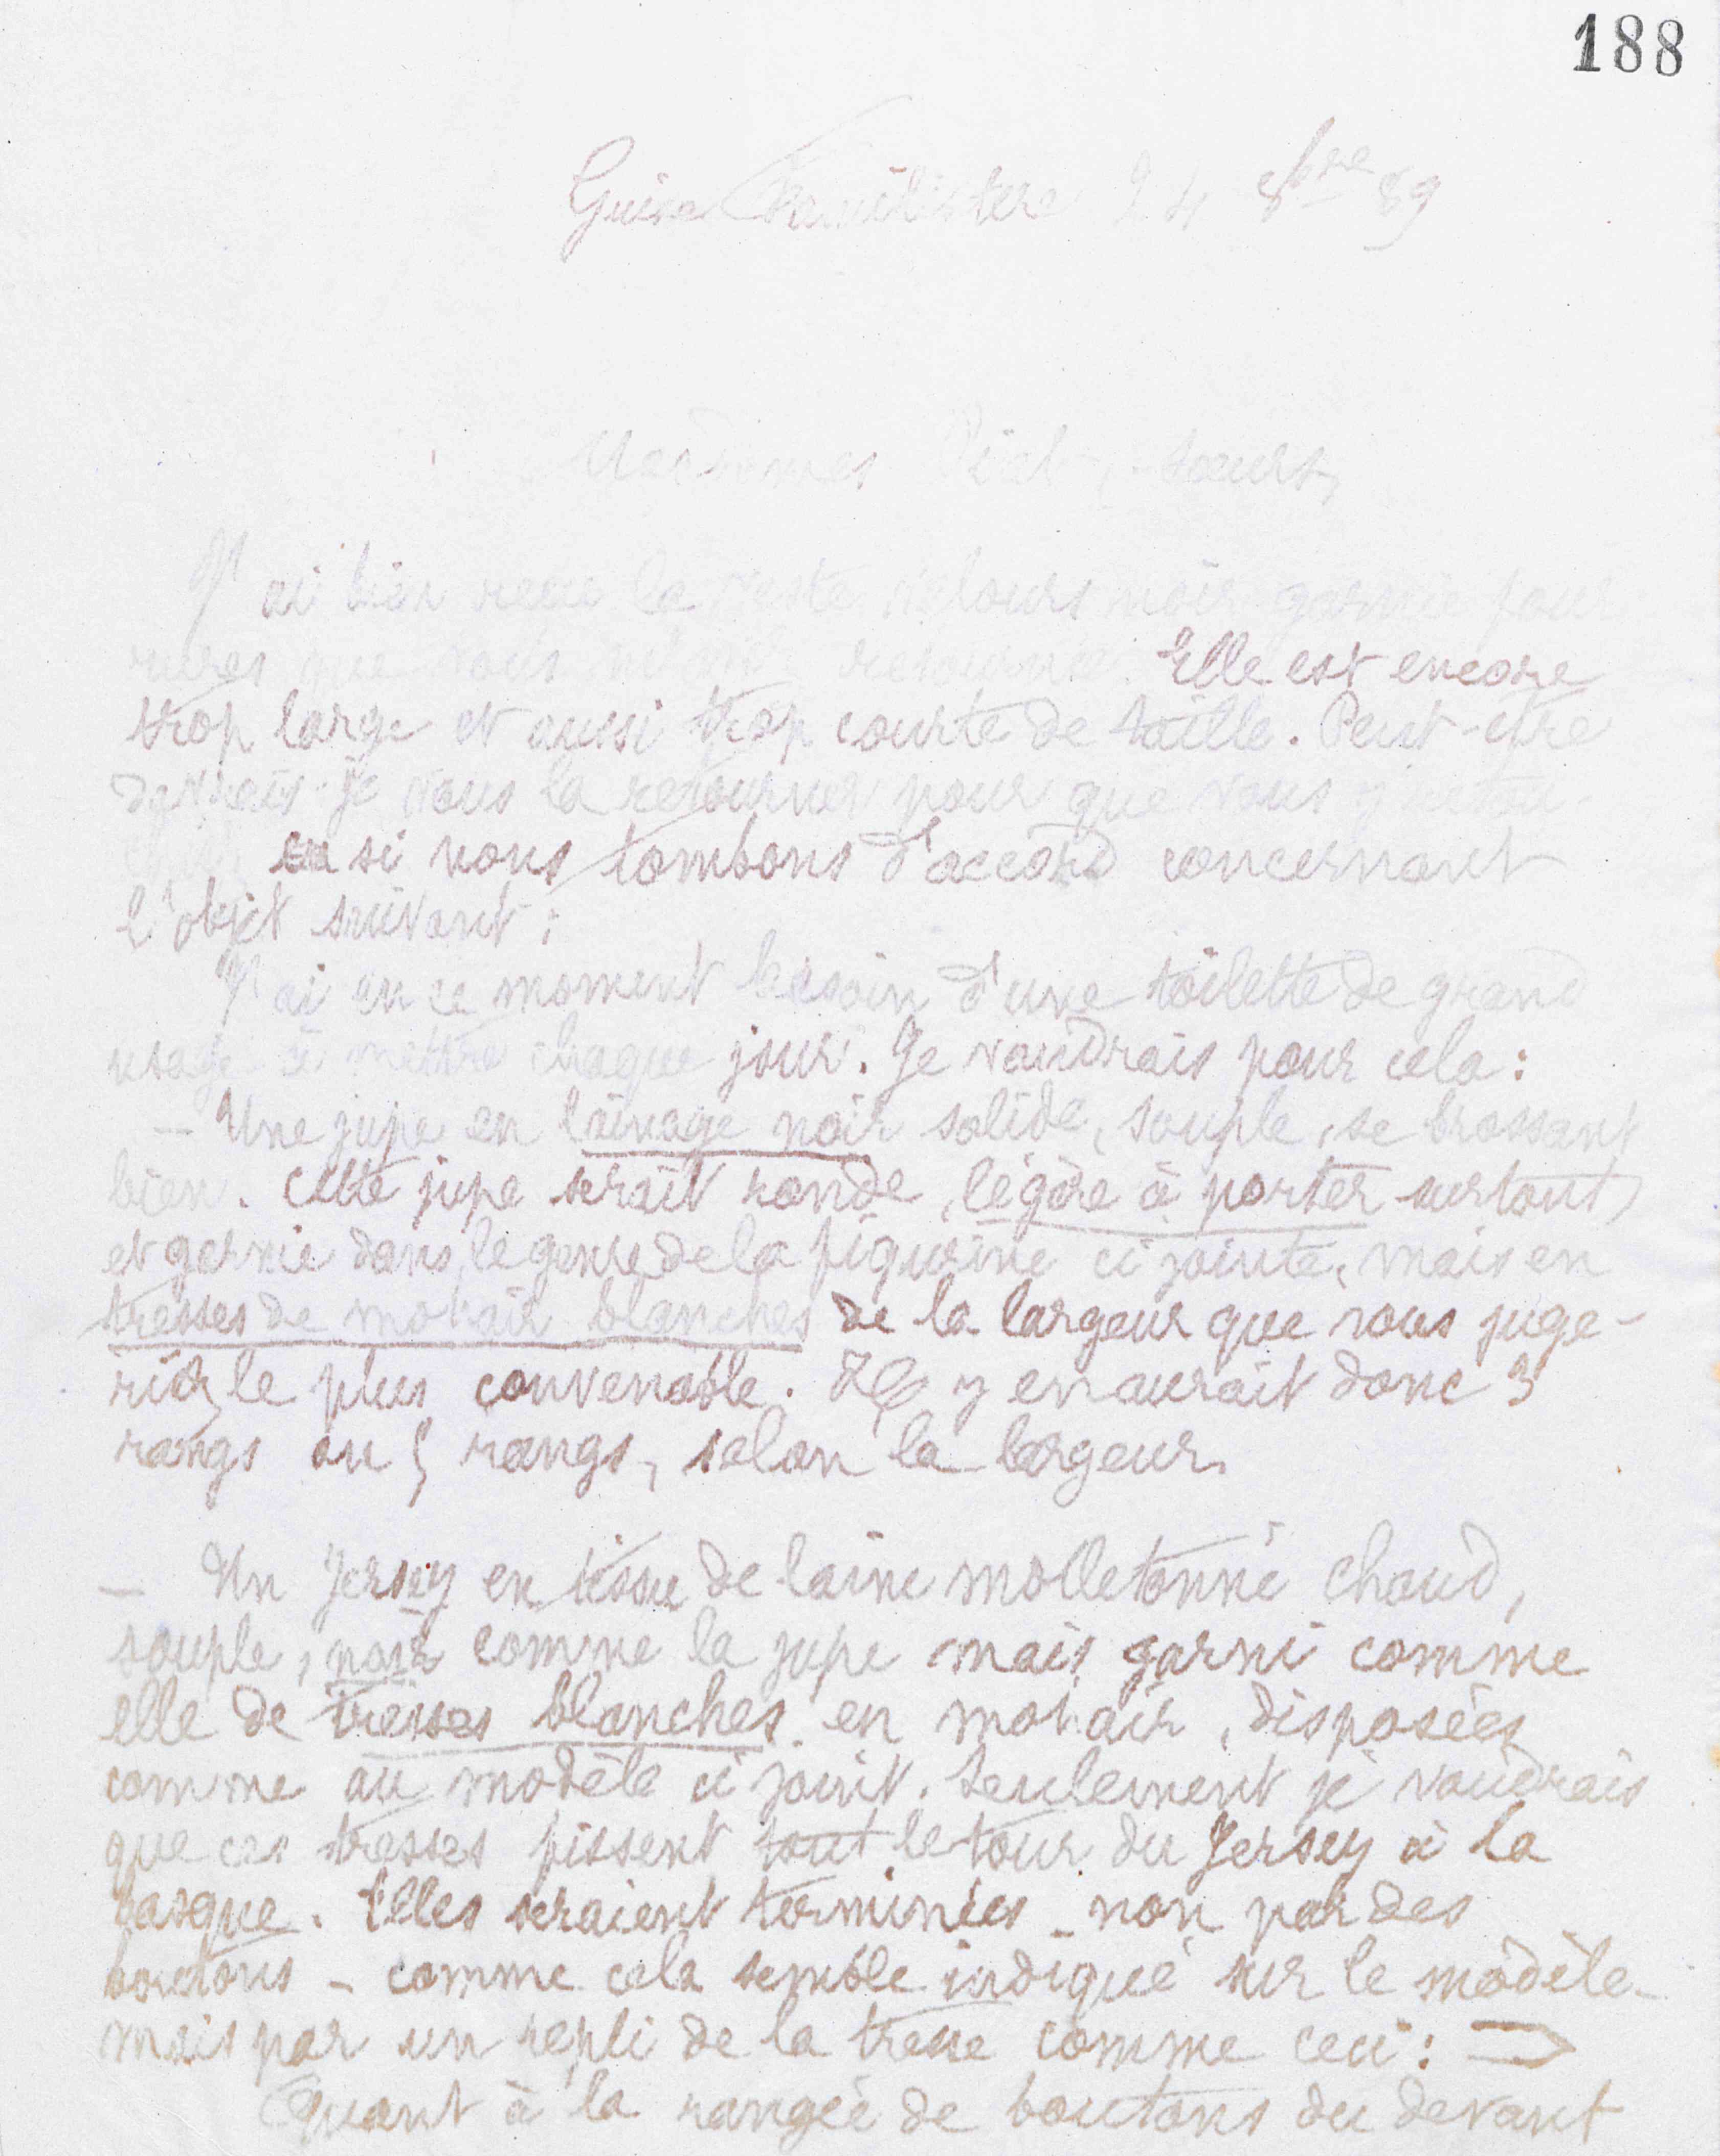 188
Guise Familistère 24 8bre 89
Mesdames sœurs,
J'ai bien reçu la veste velours noir garnie four
rures que vous m'avez retournée. Elle est encore
trop large et aussi trop courte de taille. Peut-être
devrais-je vous la retourner pour que vous y retou-
si nous tombons d'accord concernant
l'objet suivant :
J'ai en ce moment besoin d'une toilette de grand
usage à mettre chaque jour. Je voudrais pour cela :
— Une jupe en lainage noir solide, souple, se brossant
bien. Cette jupe serait ronde, légère à porter surtout
et garnie dans le genre de la figurine ci jointe, mais en
tresses de mohair blanches de la largeur que vous juge-
riez le plus convenable. Il y en aurait donc 3
rangs ou 5 rangs, selon la largeur.
— Un Jersey en tissu de laine molletonné chaud,
souple, noir comme la jupe mais garni comme
elle de tresses blanches en mohair, disposées
comme au modèle ci joint. Seulement je voudrais
que ces tresses fissent tout le tour du Jersey à la
basque. Elles seraient terminées - non par des
boutons - comme cela semble indiqué sur le modèle -
mais par un repli de la tresse comme ceci :
Quant à la rangée de boutons du devant